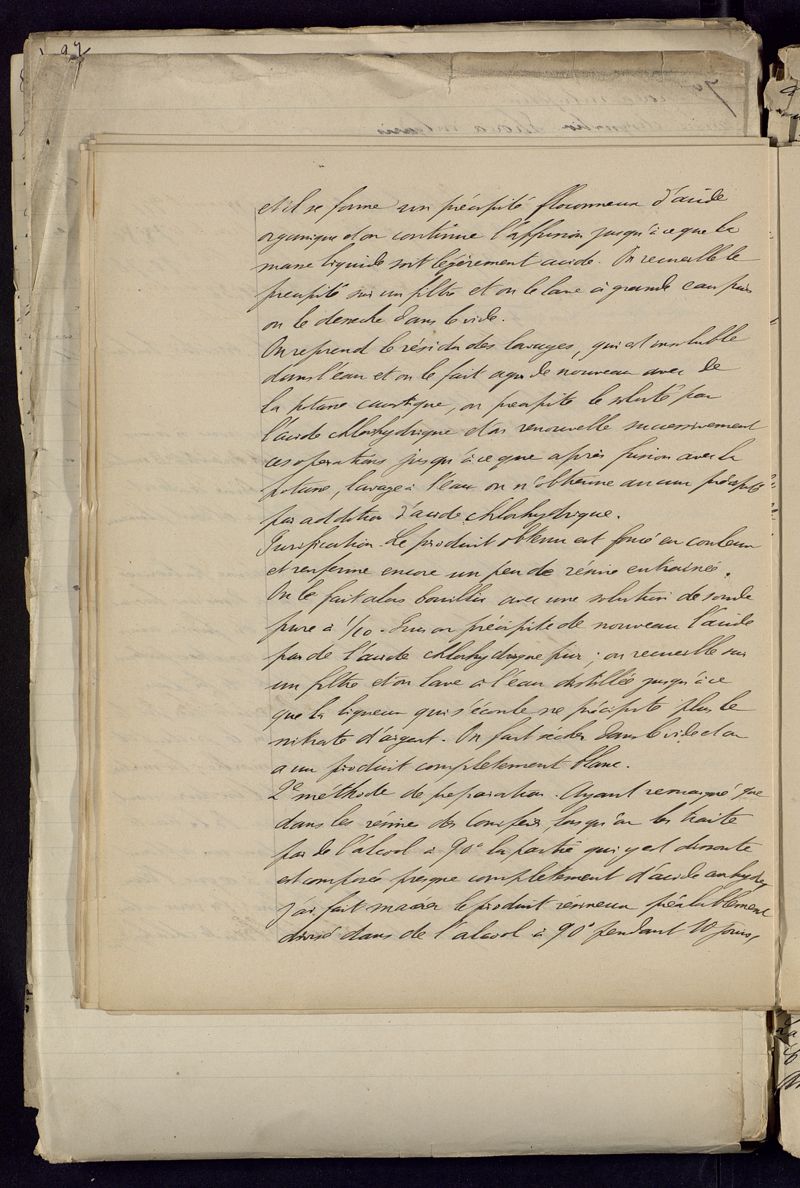 97
et il se forme un précipité floconneux d'acide
organique et on continue l'affusion jusqu'à ce que la
masse liquide soit légèrement acide. On recueille le
precipité sur un filtre et on le lave à grande eau puis
on le desseche dans le vide.
On reprend le résidu des lavages, qui est insoluble
dans l'eau et on le fait agir de nouveau avec de
la potasse caustique, on precipite le soluté par
l'acide chlorhydrique et on renouvelle successivement
ces operations jusqu'à ce que après fusion avec la
potasse, lavage à l'eau on n'obtienne aucun précipité
par addition d'acide chlorhydrique.
Purification. Le produit obtenu est foncé en couleur
et renferme encore un peu de résine entrainée.
On le fait alors bouillir avec une solution de soude
pure à 1/10. Puis on précipite de nouveau l'acide
par de l'acide chlorhydrique pur; on recueille sur
un filtre et on lave à l'eau distillée jusqu'à ce
que la liqueur qui s'écoule ne précipite plus le
nitrate d'argent. On fait sécher dans le vide et on
a un produit completement blanc.
2e méthode de preparation. Ayant remarqué que
dans les résines des Conifères, lorsqu'on les traite
par de l'alcool à 90° la partie qui y est dissoute
est composée presque completement d'acide
j'ai fait macérer le produit résineux préalablement
divisé dans de l'alcool à 90° pendant 10 jours,